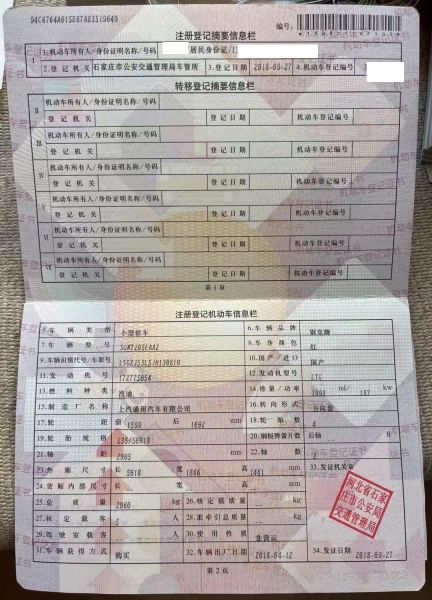 编号:
注册登记摘要信息栏
1.机动车所有人/身份证明名称/号码 居民身份证/
2.登记机关 石家庄市公安交通管理局车管所 3.登记日期 2018-09-27 4.机动车登记编号
转移登记摘要信息栏
II 机动车所有人/身份证明名称/号码
登记机关 登记日期 机动车登记编号
III 机动车所有人/身份证明名称/号码
登记机关 登记日期 机动车登记编号
IV 机动车所有人/身份证明名称/号码
登记机关 登记日期 机动车登记编号
V 机动车所有人/身份证明名称/号码
登记机关 登记日期 机动车登记编号
VI 机动车所有人/身份证明名称/号码
登记机关 登记日期 机动车登记编号
VII 机动车所有人/身份证明名称/号码
登记机关 登记日期 机动车登记编号
第1页
注册登记机动车信息栏
5.车辆类型 小型轿车 6.车辆品牌 别克牌
7.车辆型号 8.车身颜色 红
9.车辆识别代号/车架号 10.国产/进口 国产
11.发动机号 172775054 12.发动机型号 LTG
13.燃料种类 汽油 14.排量/功率 1998 ml/ 187 kw
15.制造厂名称 上汽通用汽车有限公司 16.转向形式 方向盘
17.轮距 前 1599 后 1602 mm 18.轮胎数 4
19.轮胎规格 20.钢板弹簧片数 后轴 片
21.轴距 2905 mm 22.轴数 2
23.外廓尺寸 长 5018 宽 1866 高 1461 mm 33.发证机关章
24.货厢内部尺寸 长 宽 高 mm
25.总质量 2060 kg 26.核定载质量 kg
27.核定载客 5 人 28.准牵引总质量 kg
29.驾驶室载客 人 30.使用性质 非营运
31.车辆获得方式 购买 32.车辆出厂日期 2018-04-12 34.发证日期 2018-09-27
河北省石家
庄市公安局
交通管理局
第2页